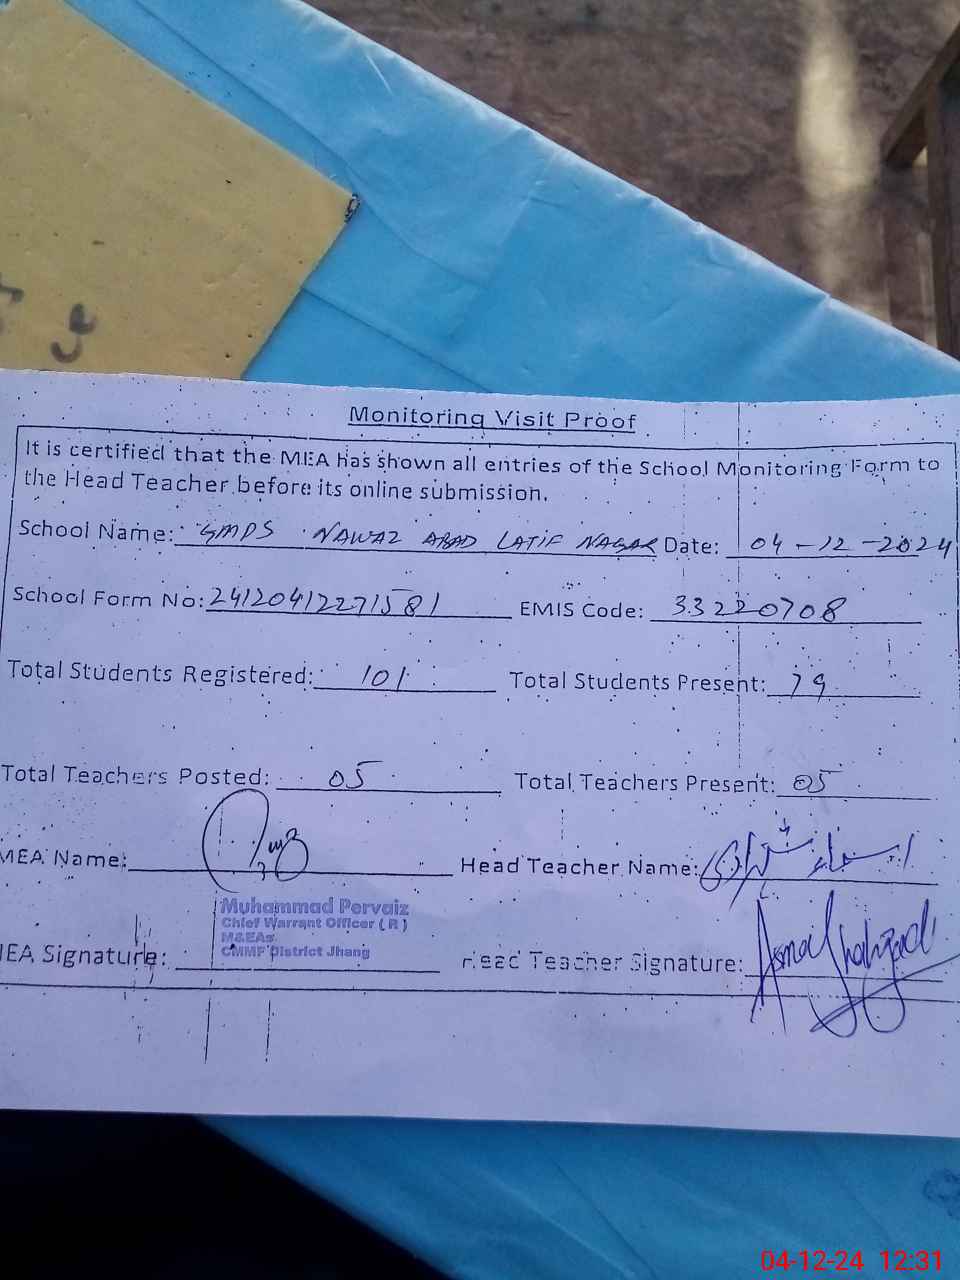 Monitoring Visit Proof
It is certified that the MEA has shown all entries of the School Monitoring Form to
the Head Teacher before its online submission.
School Name: GMPS NAWAZ ABAD LATIF NAGAR Date: 04-12-2024
School Form No: 24120412271581 EMIS Code: 33220708
Total Students Registered: 101 Total Students Present: 79
Total Teachers Posted: 05 Total Teachers Present: 05
MEA Name: Head Teacher Name: اسماء شہزادی
Muhammad Pervaiz
Chief Warrant Officer (R)
M&EAs
CMMF District Jhang
MEA Signature: Head Teacher Signature: Asma Shahzadi
04-12-24 12:31